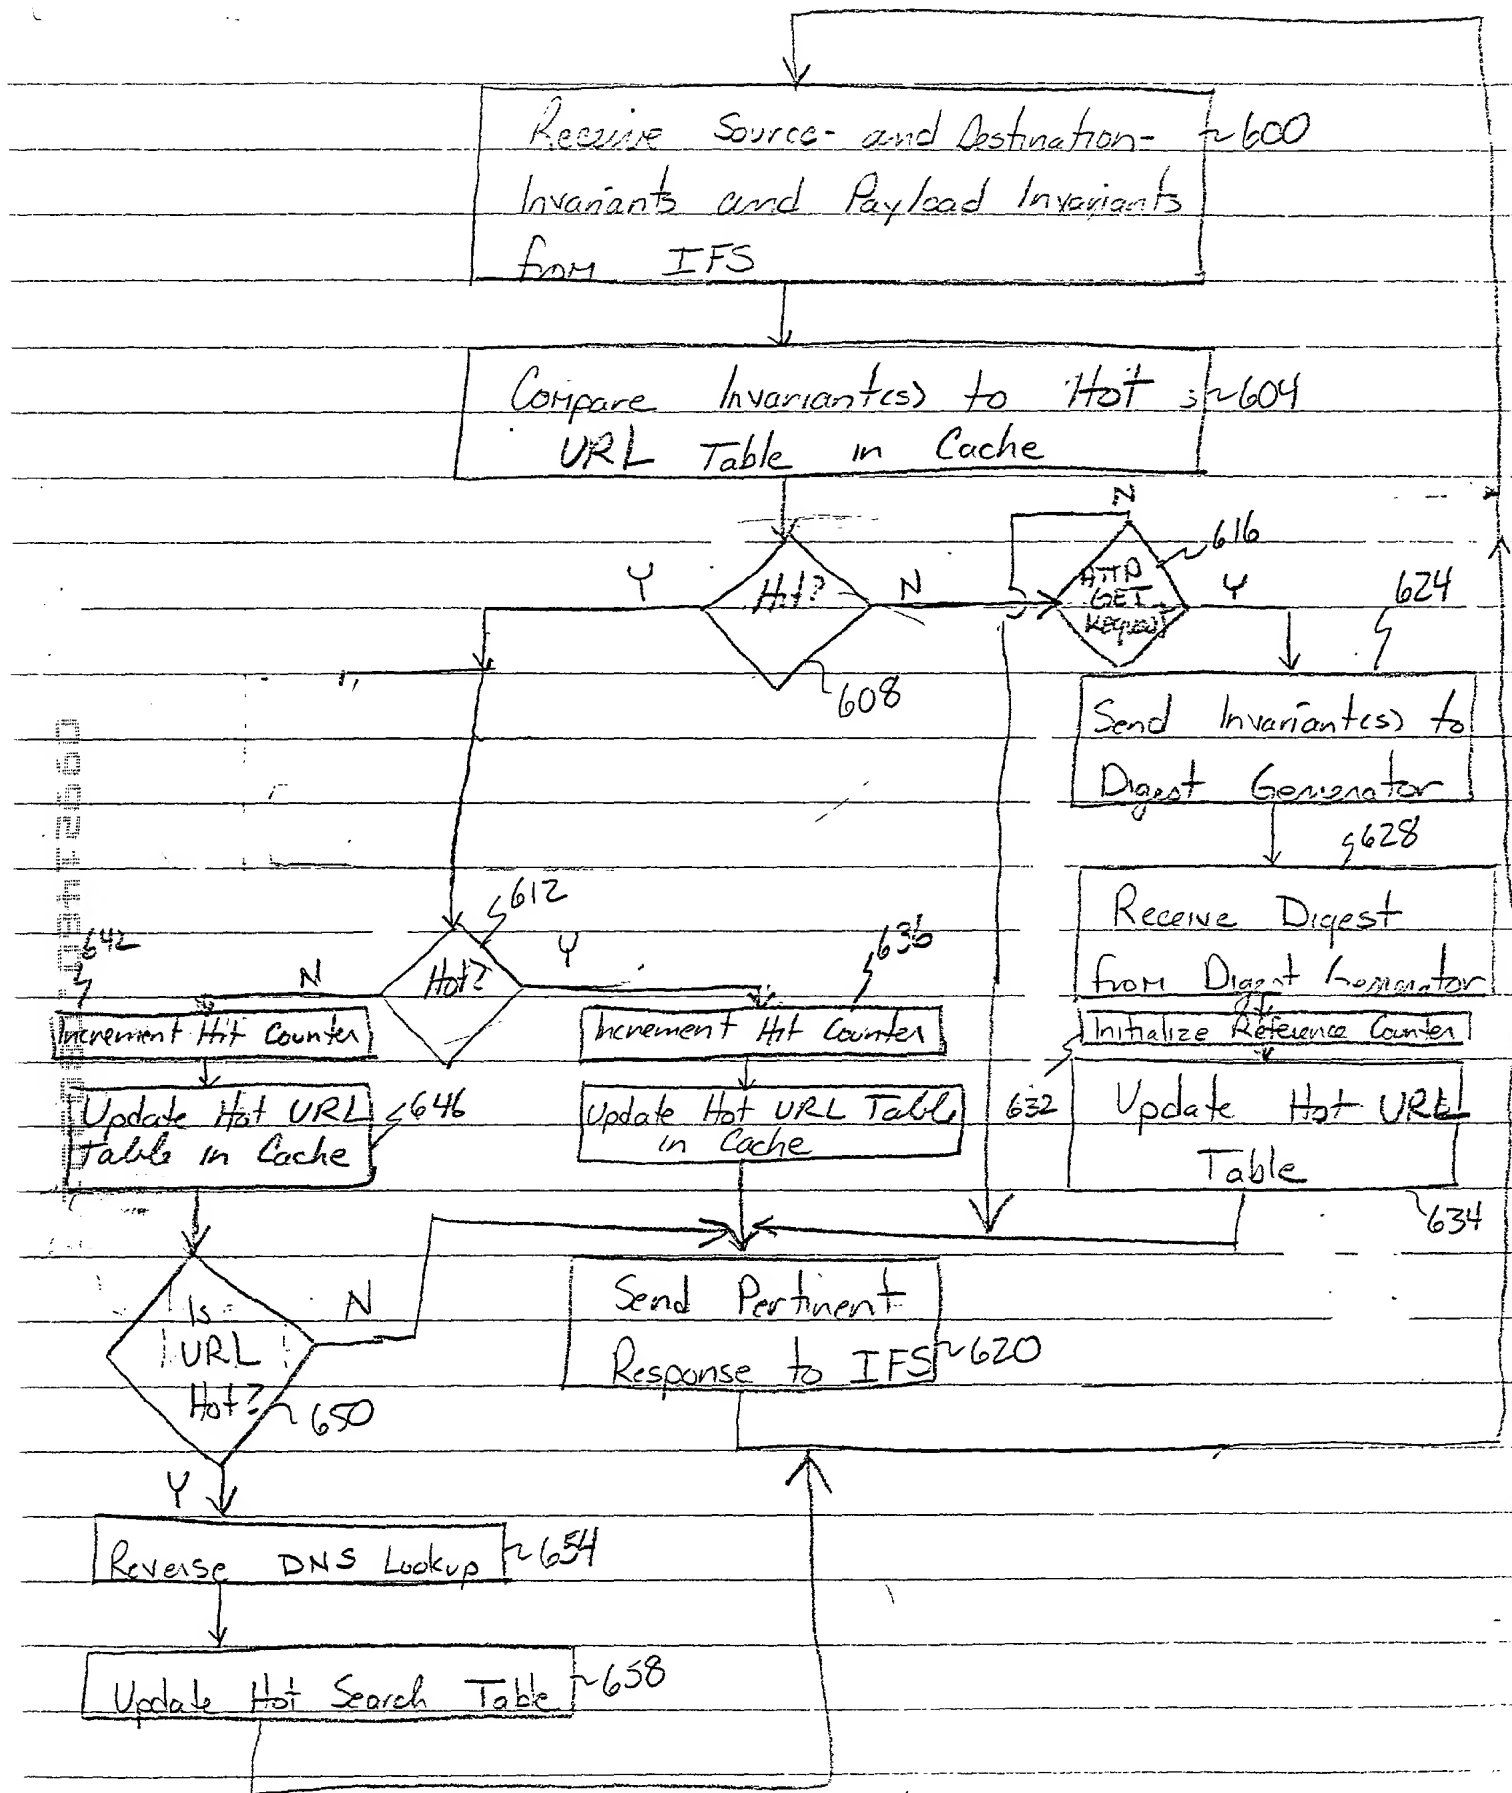 Receive Source- and Destination-
Invariants and Payload Invariants
from IFS
600
Compare Invariant(s) to Hot
URL Table in Cache
604
Hit?
Y
N
608
HTTP
GET
Request
N
Y
616
624
Send Invariant(s) to
Digest Generator
628
Receive Digest
from Digest Generator
Initialize Reference Counter
632
Update Hot URL
Table
634
612
Hot?
N
Y
642
Increment Hit Counter
Update Hot URL
Table in Cache
646
636
Increment Hit Counter
Update Hot URL Table
in Cache
Is
URL
Hot?
650
N
Y
Send Pertinent
Response to IFS
620
Reverse DNS Lookup
654
Update Hot Search Table
658